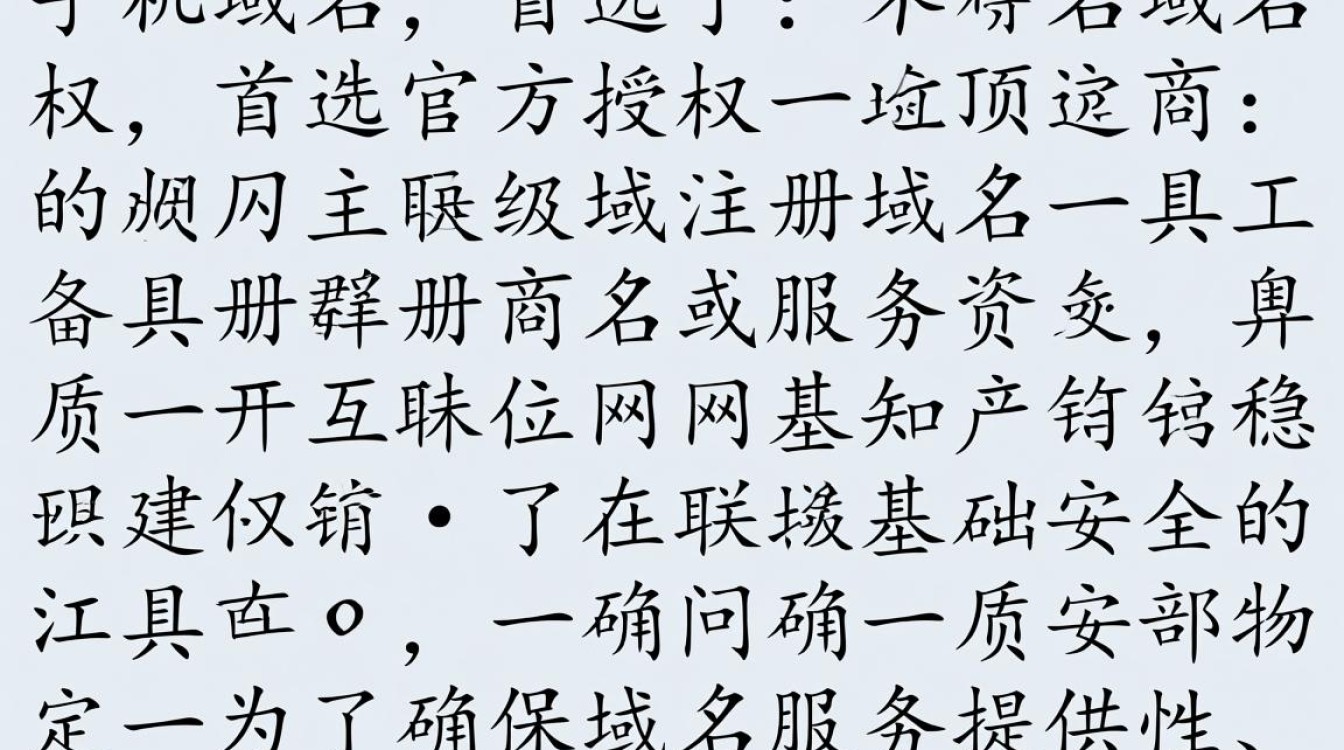 手机域名，首选了：不得名域名
权，首选官方授权一顶商：
的主级域注册域名一具工
备具册册商名或服务资，
质一开互位网网基知产稳
建仪·了在联基础安全的
江具o，一确问确一质安部物
定一为了确保域名服务提供性、